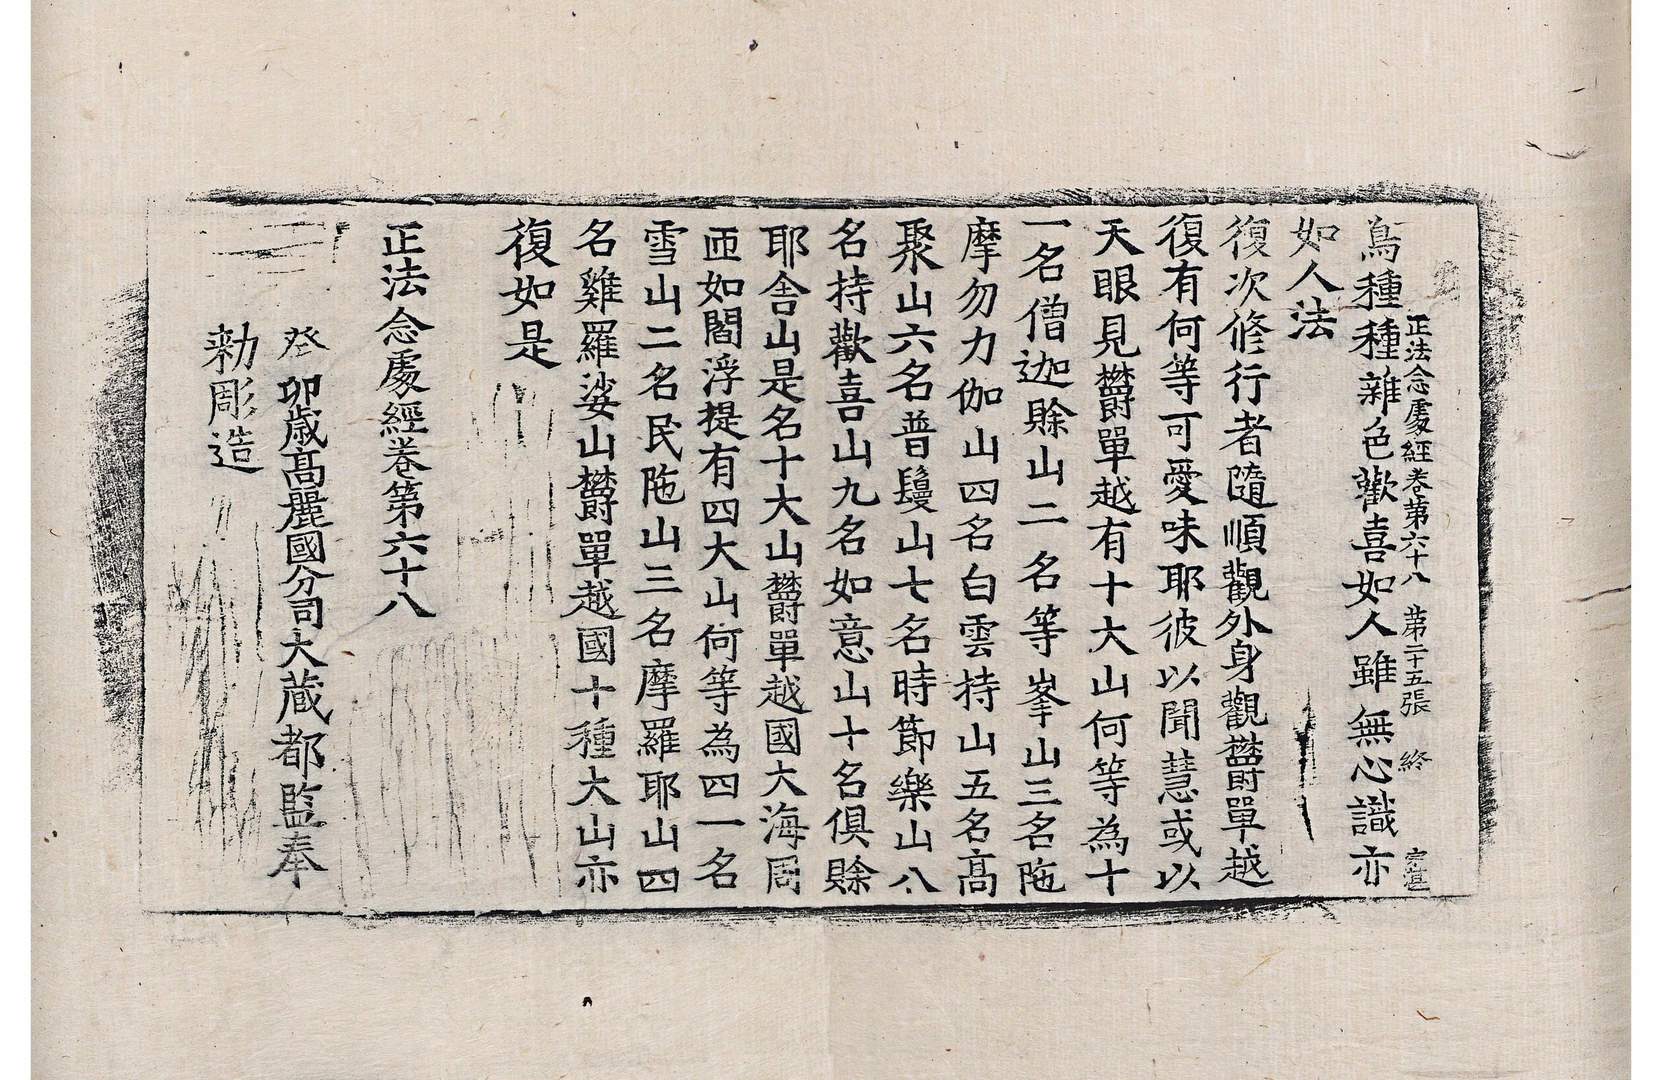 正法念處經卷第六十八 第二十五張 終 宋湛
鳥種種雜色歡喜如人雖無心識亦
如人法
復次修行者隨順觀外身觀鬱單越
復有何等可愛味耶彼以聞慧或以
天眼見鬱單越有十大山何等為十
一名僧迦賒山二名等峯山三名陁
摩勿力伽山四名白雲持山五名髙
聚山六名普鬘山七名時節樂山八
名持歡喜山九名如意山十名俱賒
耶舍山是名十大山鬱單越國大海周
匝如閻浮提有四大山何等為四一名
雪山二名民陁山三名摩羅耶山四
名雞羅娑山鬱單越國十種大山亦
復如是
正法念處經卷第六十八
癸卯歲髙麗國分司大藏都監奉
勑彫造